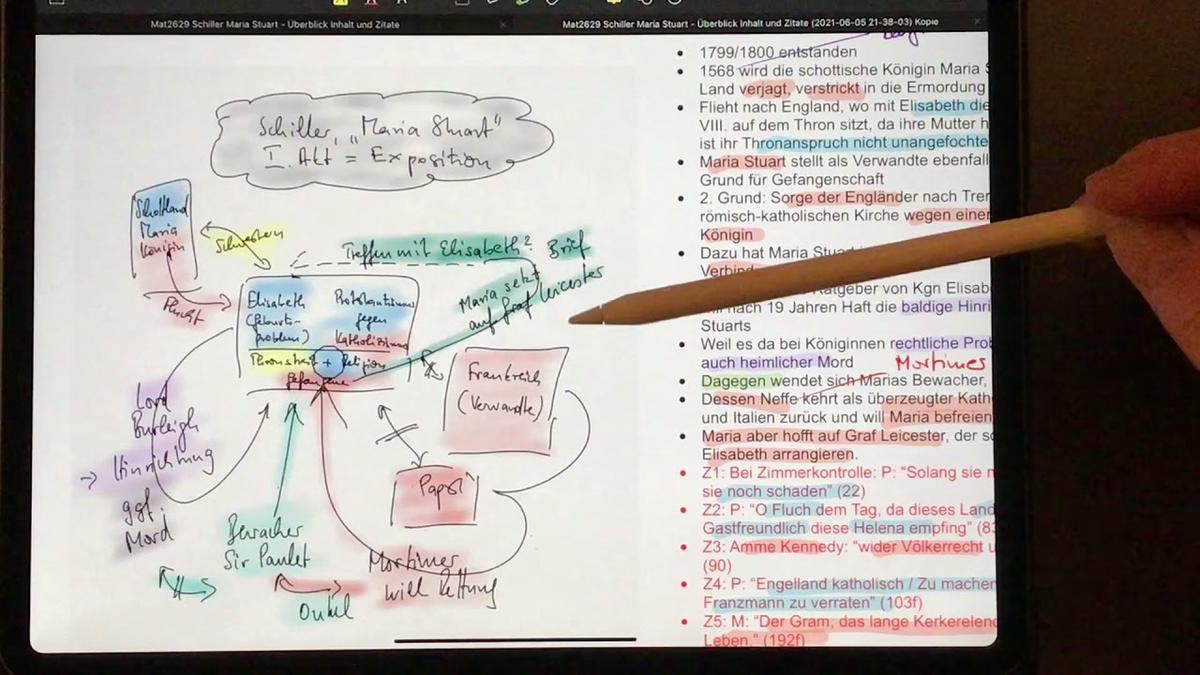 Mat2629 Schiller Maria Stuart - Überblick Inhalt und Zitate
Mat2629 Schiller Maria Stuart - Überblick Inhalt und Zitate (2021-06-05 21-38-03) Kopie
Schiller, "Maria Stuart"
I. Akt = Exposition
Schottland
Maria
Königin
Schwestern
Flucht
Treffen mit Elisabeth? Brief
Maria setzt
auf Graf Leicester
Elisabeth
(Geburts-
problem)
Protestantismus
gegen
Katholizismus
Thronstreit + Religion
Gefangene
Frankreich
(Verwandte)
Papst
Lord
Burleigh
→ Hinrichtung
ggf.
Mord
Bewacher
Sir Paulet
Onkel
Mortimer
will Rettung
• 1799/1800 entstanden
• 1568 wird die schottische Königin Maria S
Land verjagt, verstrickt in die Ermordung
• Flieht nach England, wo mit Elisabeth die
VIII. auf dem Thron sitzt, da ihre Mutter h
ist ihr Thronanspruch nicht unangefochte
• Maria Stuart stellt als Verwandte ebenfal
Grund für Gefangenschaft
• 2. Grund: Sorge der Engländer nach Tren
römisch-katholischen Kirche wegen einer
Königin
• Dazu hat Maria Stuar
Verbind
atgeber von Kgn Elisab
nach 19 Jahren Haft die baldige Hinri
Stuarts
• Weil es da bei Königinnen rechtliche Prob
auch heimlicher Mord
Mortimer
• Dagegen wendet sich Marias Bewacher,
• Dessen Neffe kehrt als überzeugter Kath
und Italien zurück und will Maria befreien
• Maria aber hofft auf Graf Leicester, der so
Elisabeth arrangieren.
• Z1: Bei Zimmerkontrolle: P: “Solang sie n
sie noch schaden” (22)
• Z2: P: “O Fluch dem Tag, da dieses Land
Gastfreundlich diese Helena empfing” (83
• Z3: Amme Kennedy: “wider Völkerrecht u
(90)
• Z4: P: “Engelland katholisch / Zu machen
Franzmann zu verraten” (103f)
• Z5: M: “Der Gram, das lange Kerkerelend
Leben.” (192f)